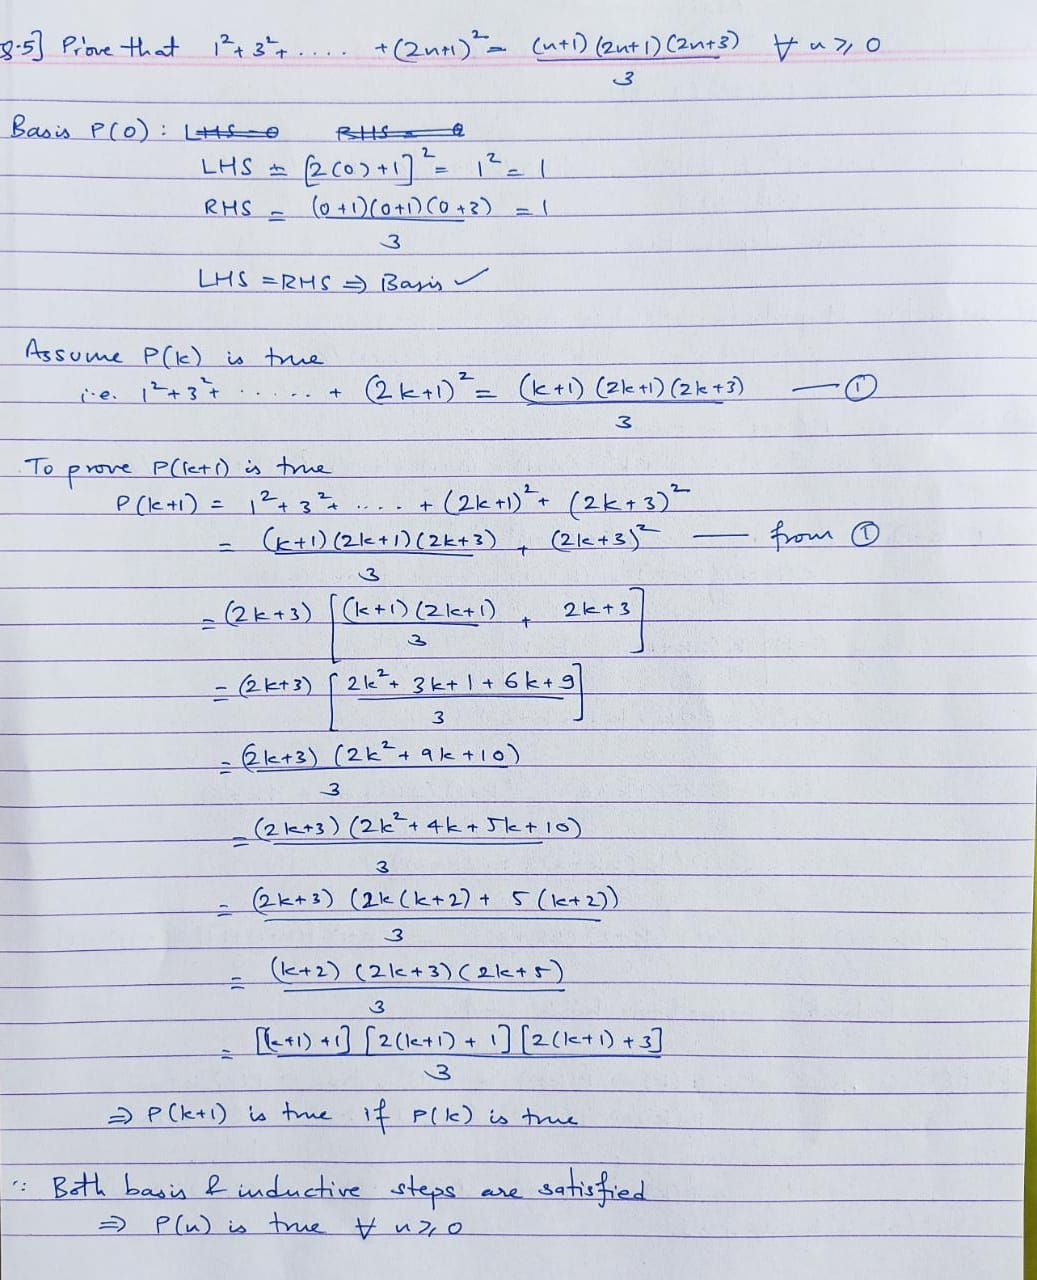 Q.5] Prove that 1²+3²+ .... +(2n+1)² = (n+1)(2n+1)(2n+3)/3 ∀ n ≥ 0
Basis P(0) : ~~LHS = 0~~ ~~RHS = 0~~
LHS = [2(0)+1]² = 1² = 1
RHS = (0+1)(0+1)(0+3)/3 = 1
LHS = RHS ⇒ Basis ✓
Assume P(k) is true
i.e. 1²+3²+ ...... + (2k+1)² = (k+1)(2k+1)(2k+3)/3 — ①
To prove P(k+1) is true
P(k+1) = 1²+3²+ .... + (2k+1)² + (2k+3)²
= (k+1)(2k+1)(2k+3)/3 + (2k+3)² — from ①
= (2k+3) [(k+1)(2k+1)/3 + 2k+3]
= (2k+3) [(2k²+3k+1+6k+9)/3]
= (2k+3)(2k²+9k+10)/3
= (2k+3)(2k²+4k+5k+10)/3
= (2k+3)(2k(k+2)+5(k+2))/3
= (k+2)(2k+3)(2k+5)/3
= [(k+1)+1][2(k+1)+1][2(k+1)+3]/3
⇒ P(k+1) is true if P(k) is true
∵ Both basis & inductive steps are satisfied
⇒ P(n) is true ∀ n ≥ 0